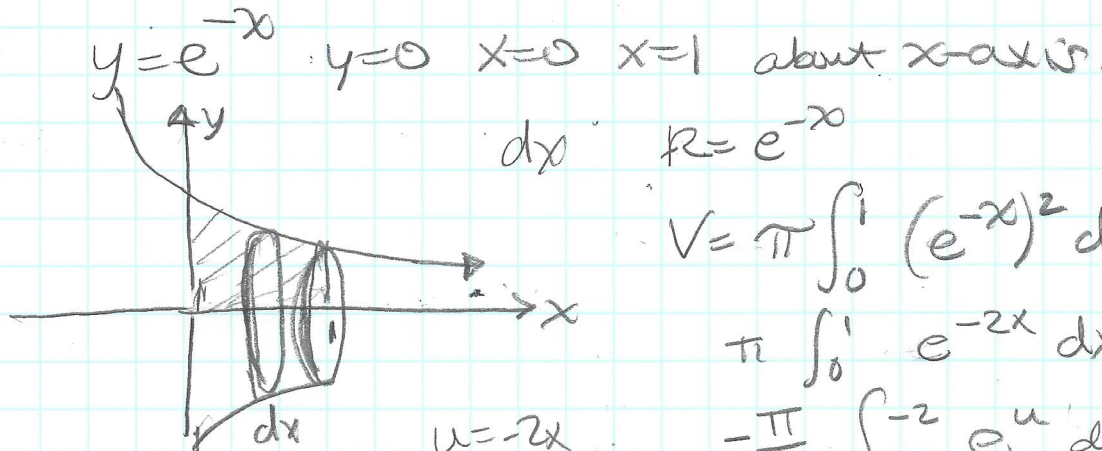 y=e^{-x} y=0 x=0 x=1 about x-axis.
y
dx R=e^{-x}
V=π∫_0^1 (e^{-x})^2 d
x
π∫_0^1 e^{-2x} dx
dx u=-2x -π ∫^{-2} e^u d